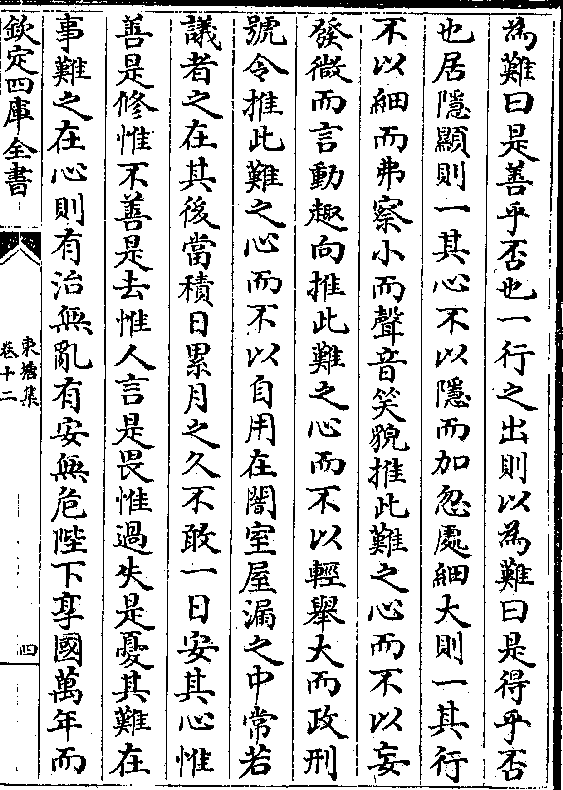 為難曰是善乎否也一行之出則以為難曰是得乎否
也居隱顯則一其心不以隱而加忽處細大則一其行
不以細而弗察小而聲音笑貌推此難之心而不以妄
發微而言動趣向推此難之心而不以輕舉大而政刑
號令推此難之心而不以自用在闇室屋漏之中常若
議者之在其後當積日累月之久不敢一日安其心惟
善是修惟不善是去惟人言是畏惟過失是憂其難在
事難之在心則有治無亂有安無危陛下享國萬年而
欽定四庫全書
東塘集
卷十二
四